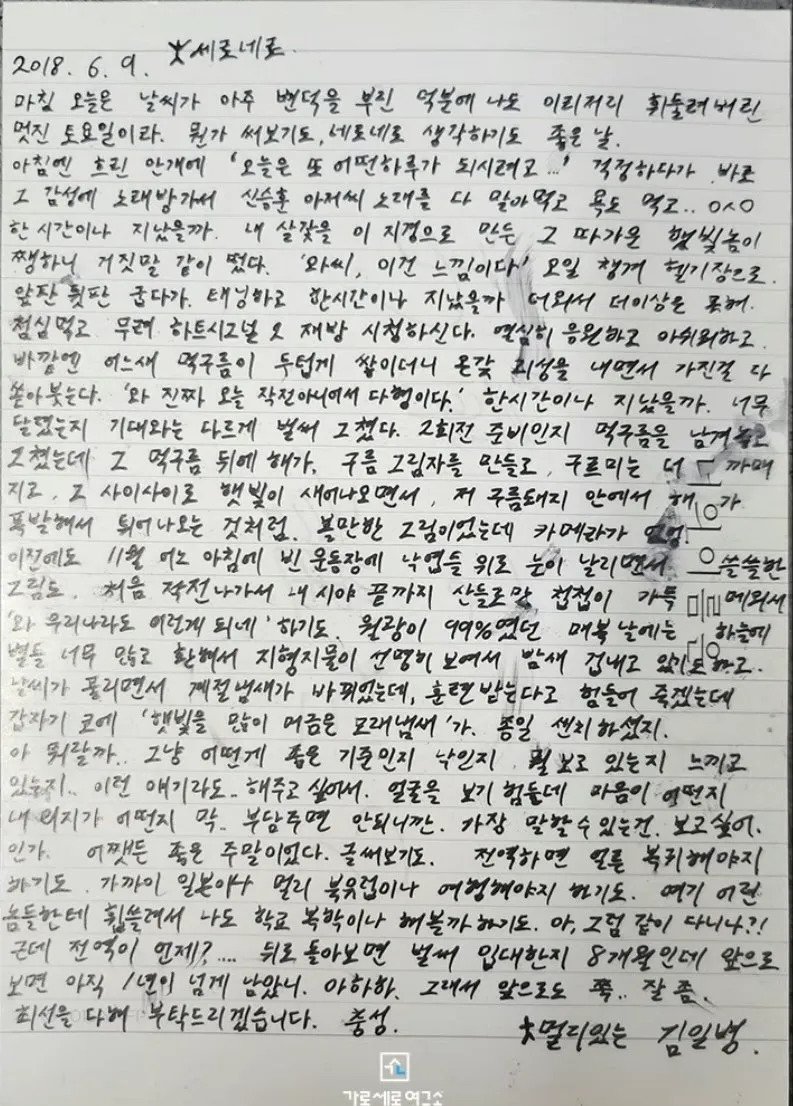 2018. 6. 9. 大세로네로.
마침 오늘은 날씨가 아주 변덕을 부린 덕분에 나도 이리저리 휘둘려버린
멋진 토요일이라. 뭔가 써보기도, 세로네로 생각하기도 좋은 날.
아침엔 흐린 안개에 '오늘은 또 어떤하루가 되시려고...' 걱정하다가 바로
그 감성에 노래방가서 신승훈 아저씨 노래를 다 말아먹고 욕도 먹고.. ㅇㅅㅇ
한 시간이나 지났을까. 내 살갗을 이 지경으로 만든 그 따가운 햇빛놈이
쨍하니 거짓말 같이 떴다. '와씨, 이건 느낌이다!' 오일 챙겨 헬기장으로.
앞판 뒷판 굽다가. 태닝하고 한시간이나 지났을까 더워서 더이상은 못해.
점심먹고 무려 하트시그널 2 재방 시청하신다. 열심히 응원하고 아쉬워하고.
바깥엔 어느새 먹구름이 두텁게 쌓이더니 온갖 괴성을 내면서 가진걸 다
쏟아붓는다. '와 진짜 오늘 작전아니어서 다행이다.' 한시간이나 지났을까. 너무
달렸는지 기대와는 다르게 벌써 그쳤다. 2회전 준비인지 먹구름을 남겨놓고
그쳤는데 그 먹구름 뒤에 해가. 구름 그림자를 만들고, 구르미는 더 까매
지고, 그 사이사이로 햇빛이 새어나오면서, 저 구름돼지 안에서 해가
폭발해서 튀어나오는 것처럼. 볼만한 그림이었는데 카메라가 없엉.
이전에도 11월 어느 아침에 빈 운동장에 낙엽들 위로 눈이 날리면서 쓸쓸한
그림도. 처음 작전나가서 내 시야 끝까지 산들로만 첩첩이 가득 메워서
'와 우리나라도 이런게 되네' 하기도. 월광이 99%였던 매복날에는 하늘에
별들 너무 많고 환해서 지형지물이 선명히 보여서 밤새 겁내고 있기도 하고.
날씨가 풀리면서 계절냄새가 바뀌었는데, 훈련받는다고 힘들어 죽겠는데
갑자기 코에 '햇빛을 많이 머금은 모래냄새'가. 종일 센치하셨지.
아 뭐랄까.. 그냥 어떤게 좋은 기준인지 낙인지 뭘 보고 있는지 느끼고
있는지.. 이런 얘기라도.. 해주고 싶어서. 얼굴을 보기 힘든데 마음이 어떤지
내 의지가 어떤지 막.. 부담주면 안되니깐. 가장 말할 수 있는건. 보고싶어.
인가. 어쨋든 좋은 주말이었다. 글써보기도. 전역하면 얼른 복귀해야지
하기도. 가까이 일본이나 멀리 북유럽이나 여행해야지 하기도. 여기 어린
놈들한테 휩쓸려서 나도 학교 복학이나 해볼까 하기도. 아, 그럼 같이 다니나?!
근데 전역이 언제?.... 뒤로 돌아보면 벌써 입대한지 8개월인데 앞으로
보면 아직 1년이 넘게 남았니. 아하하. 그래서 앞으로도 쭉.. 잘 좀.
최선을 다해 부탁드리겠습니다. 충성.
大멀리있는 김일병.
가로세로연구소